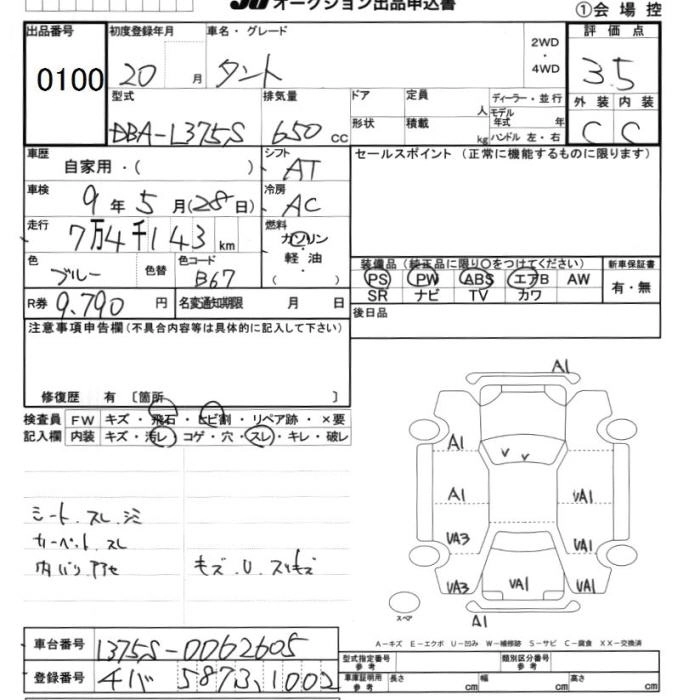 オークション出品申込書
①会場控
出品番号 初度登録年月 車名・グレード 2WD・4WD 評価点
0100 20 月 タント 3.5
型式 排気量 ドア 定員 人 ディーラー・並行 外装 内装
DBA-L375S 650 cc 形状 積載 kg モデル年式 年 ハンドル 左・右 C C
車歴 自家用・( ) シフト AT セールスポイント (正常に機能するものに限ります)
車検 9年5月(28日) 冷房 AC
走行 7万4千143km 燃料 ガソリン・軽油・( )
色 ブルー 色替 色コード B67 装備品 (純正品に限り○をつけてください) 新車保証書
PS PW ABS エアB AW 有・無
R券 9,790円 名変通知期限 月 日 SR ナビ TV カワ
注意事項申告欄(不具合内容等は具体的に記入して下さい) 後日品
修復歴 有 〔箇所 〕
検査員 FW キズ・飛石・ヒビ割・リペア跡・×要
記入欄 内装 キズ・汚レ・コゲ・穴・スレ・キレ・破レ
A1
A1
A1 UA1
UA3 UA1
UA3 UA1 UA1
A1
シート スレ シミ
カーペット スレ
内バリ アセ キズ.U.スリキズ
スペア
A-キズ E-エクボ U-凹み W-補修跡 S-サビ C-腐食 XX-交換済
車台番号 L375S-0062605 型式指定番号 参考 類別区分番号 参考
登録番号 チバ 587ろ1002 車庫証明用 参考 長さ cm 幅 cm 高さ cm